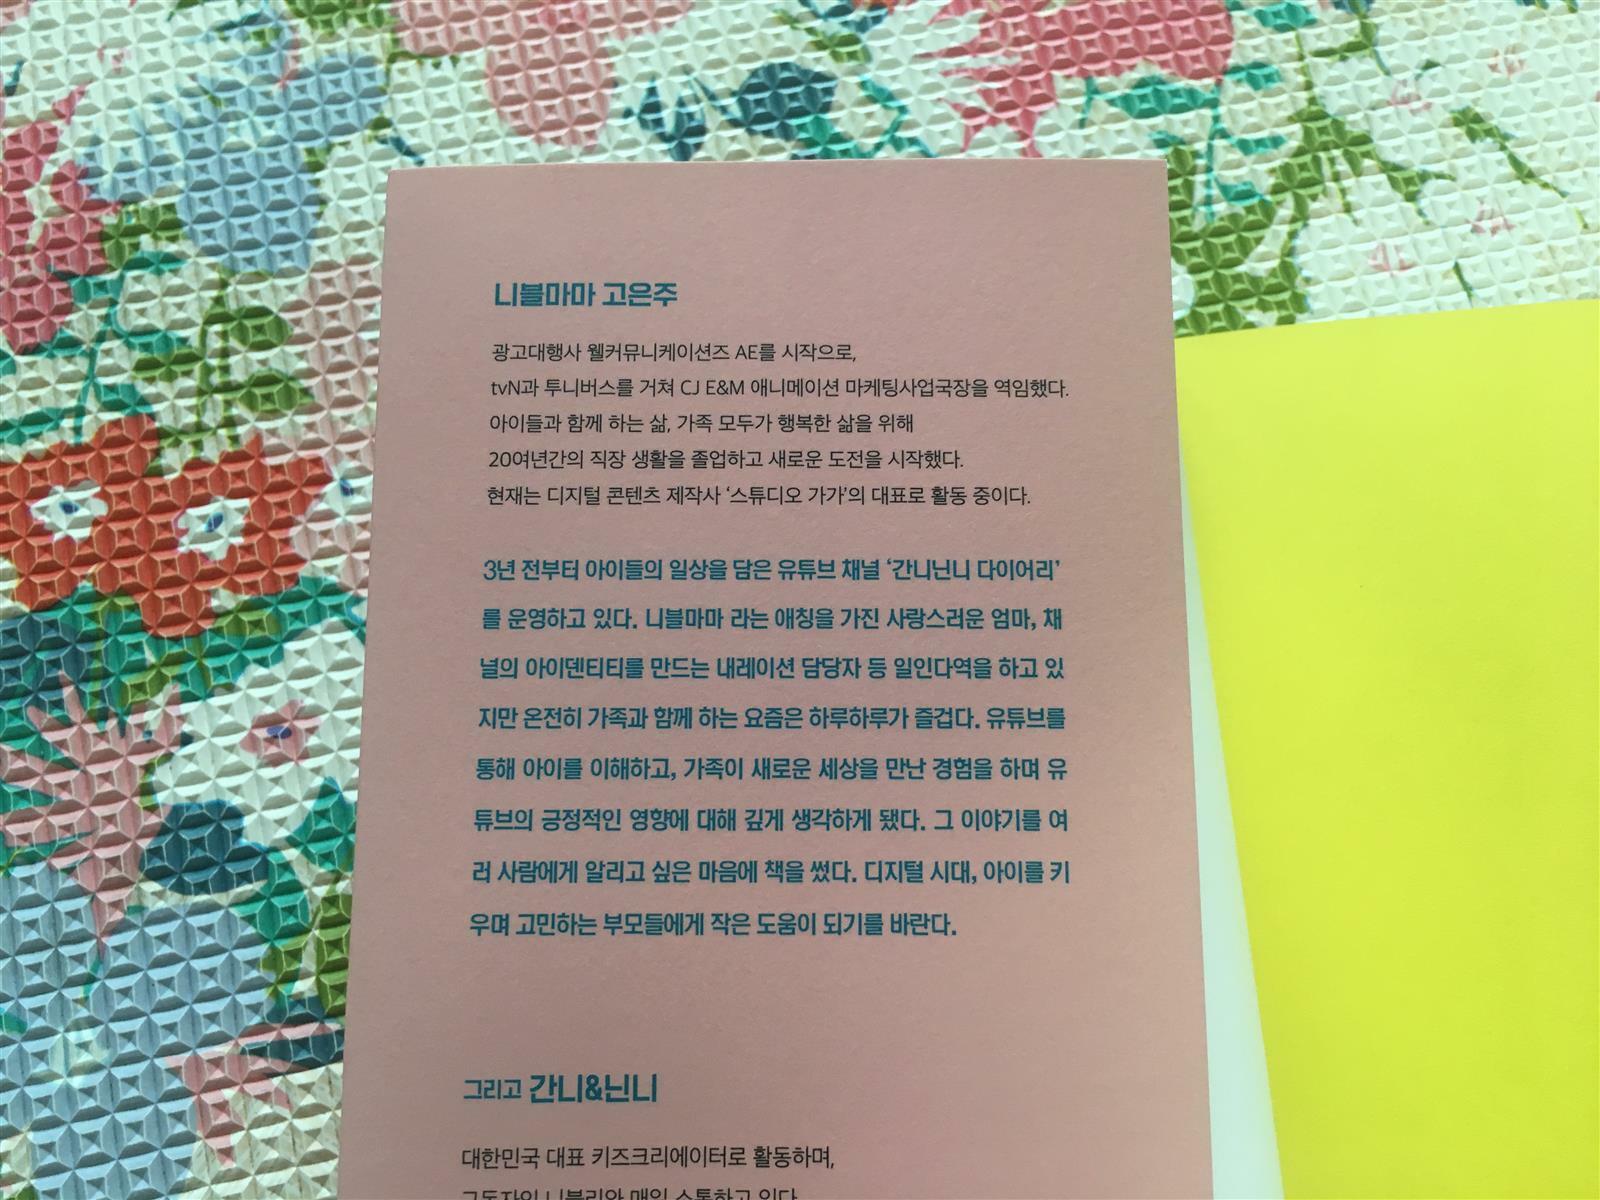 니블마마 고은주
광고대행사 웰커뮤니케이션즈 AE를 시작으로,
tvN과 투니버스를 거쳐 CJ E&M 애니메이션 마케팅사업국장을 역임했다.
아이들과 함께 하는 삶, 가족 모두가 행복한 삶을 위해
20여년간의 직장 생활을 졸업하고 새로운 도전을 시작했다.
현재는 디지털 콘텐츠 제작사 ‘스튜디오 가가’의 대표로 활동 중이다.
3년 전부터 아이들의 일상을 담은 유튜브 채널 ‘간니닌니 다이어리’
를 운영하고 있다. 니블마마 라는 애칭을 가진 사랑스러운 엄마, 채
널의 아이덴티티를 만드는 내레이션 담당자 등 일인다역을 하고 있
지만 온전히 가족과 함께 하는 요즘은 하루하루가 즐겁다. 유튜브를
통해 아이를 이해하고, 가족이 새로운 세상을 만난 경험을 하며 유
튜브의 긍정적인 영향에 대해 깊게 생각하게 됐다. 그 이야기를 여
러 사람에게 알리고 싶은 마음에 책을 썼다. 디지털 시대, 아이를 키
우며 고민하는 부모들에게 작은 도움이 되기를 바란다.
그리고 간니&닌니
대한민국 대표 키즈크리에이터로 활동하며,
구독자인 니블리와 매일 소통하고 있다.